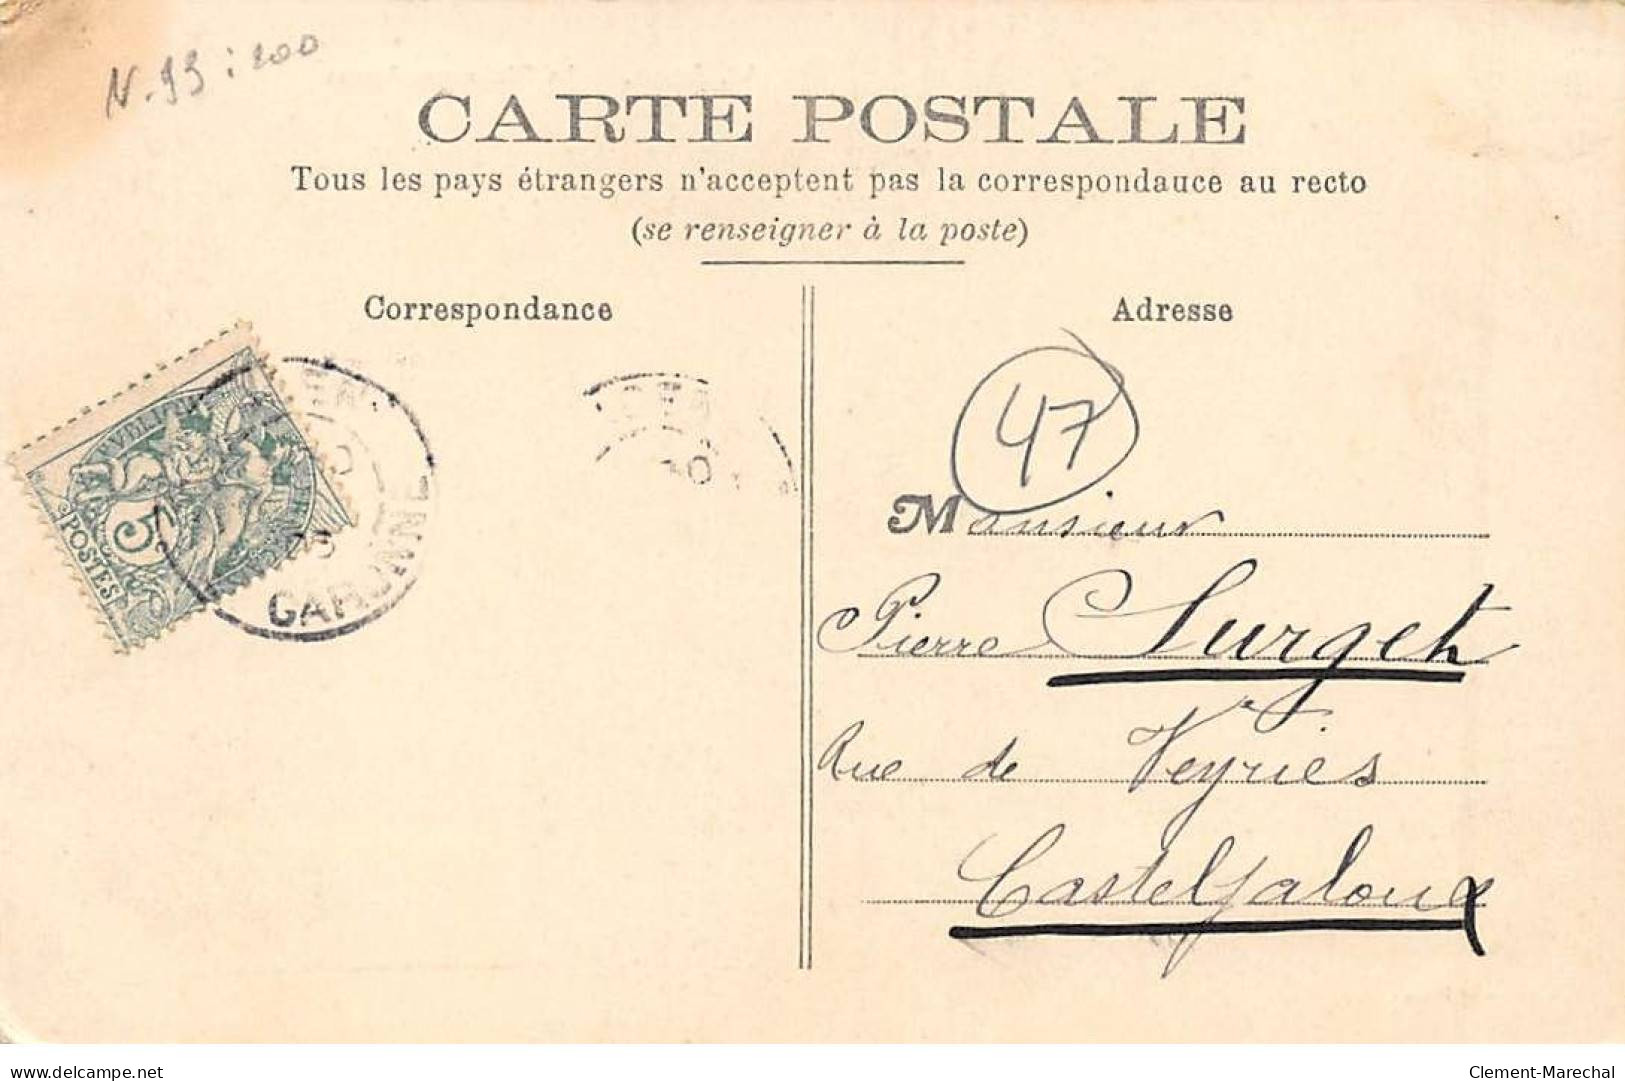 N. 93 : 200
CARTE POSTALE
Tous les pays étrangers n'acceptent pas la correspondance au recto
(se renseigner à la poste)
Correspondance
Adresse
5
POSTES
GARONNE
47
Monsieur
Pierre Surget
Rue de Veyries
Casteljaloux
delcampe.net
Clement-Marechal